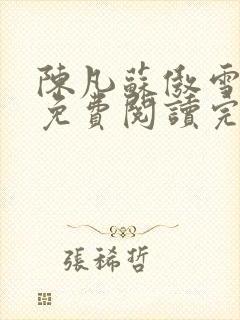 陳凡蘇傲雪
免費閱讀完
張稀哲